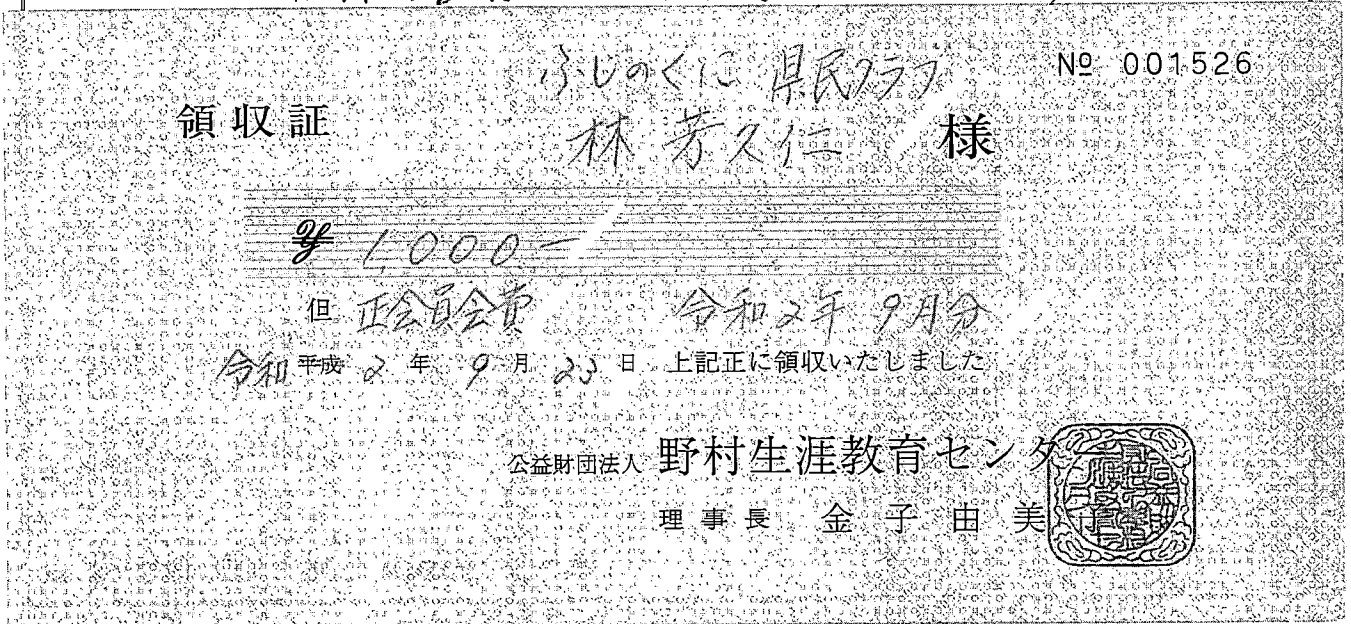 ふじのくに 県民クラブ
№ 001526
領収証
林 芳久仁 様
¥ 1,000ー
但 正会員会費 令和2年 9月分
令和 平成 2 年 9 月 23 日 上記正に領収いたしました
公益財団法人 野村生涯教育センター
理事長 金子由美子